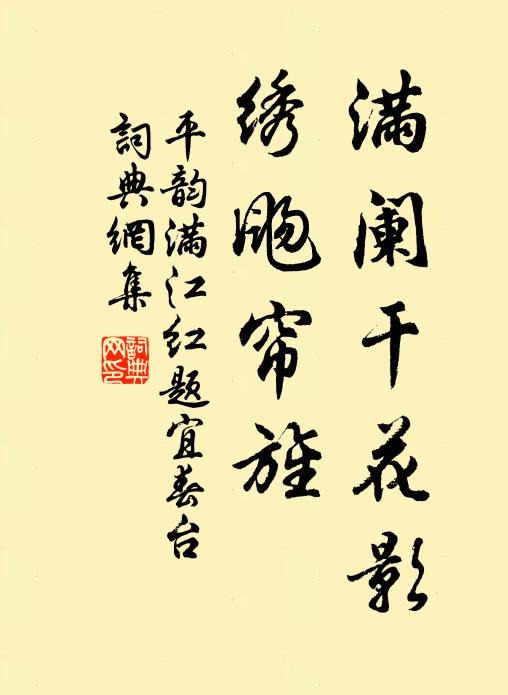 满阑干花影
绣飏帘旌
平韵满江红题宜春台
詞典網集
詞典
网印